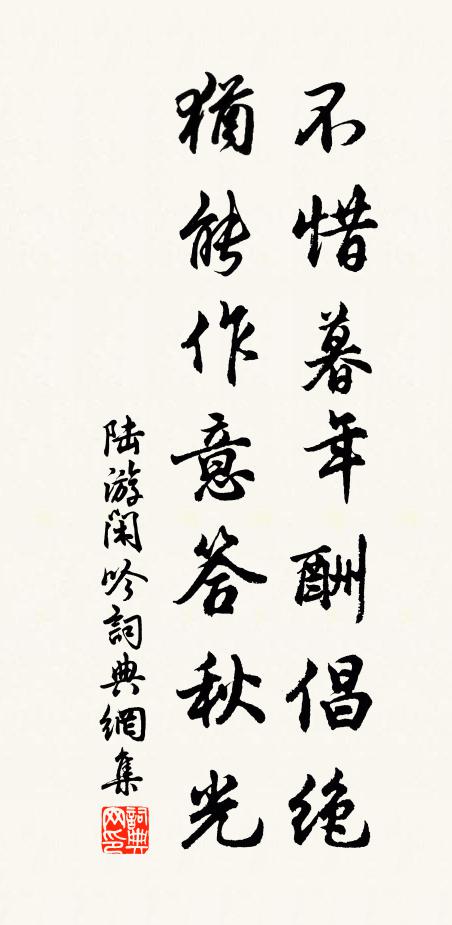 不惜暮年酬倡絶
猶能作意答秋光
陆游閑吟詞典網集
詞典网印